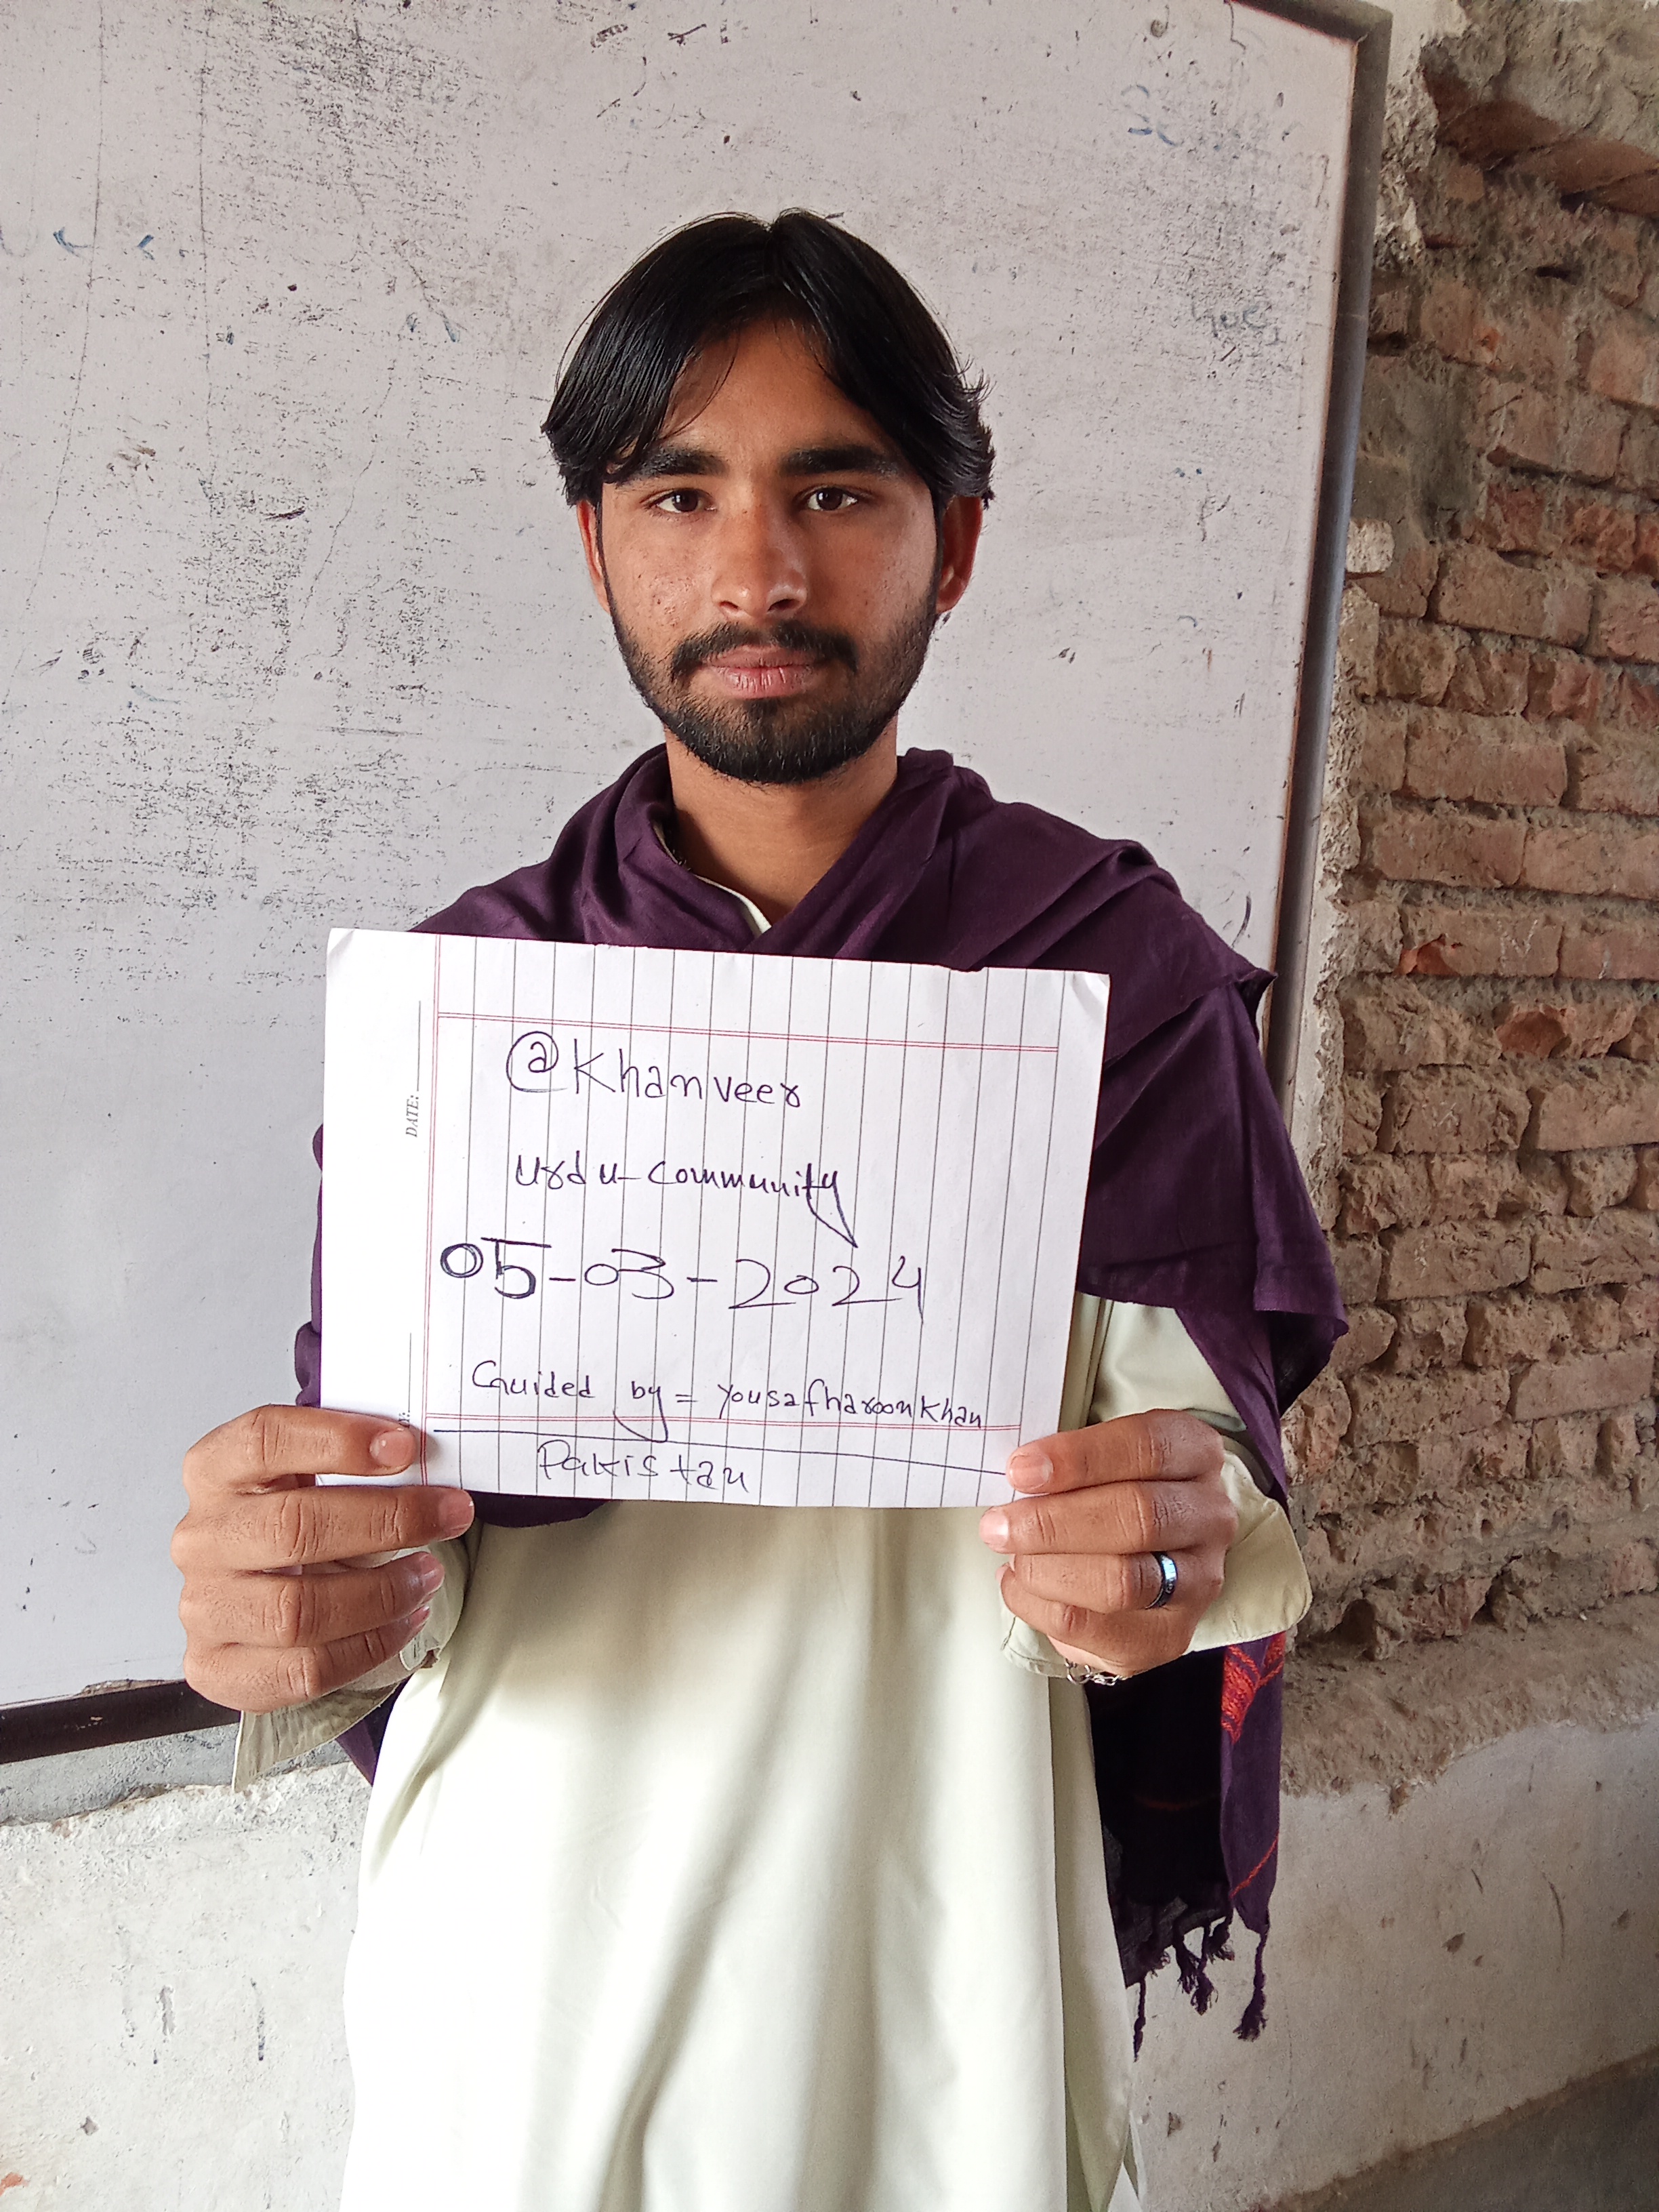 @Khanveer
urdu-community
05-03-2024
Guided by = yousafharoonkhan
Pakistan
DATE: